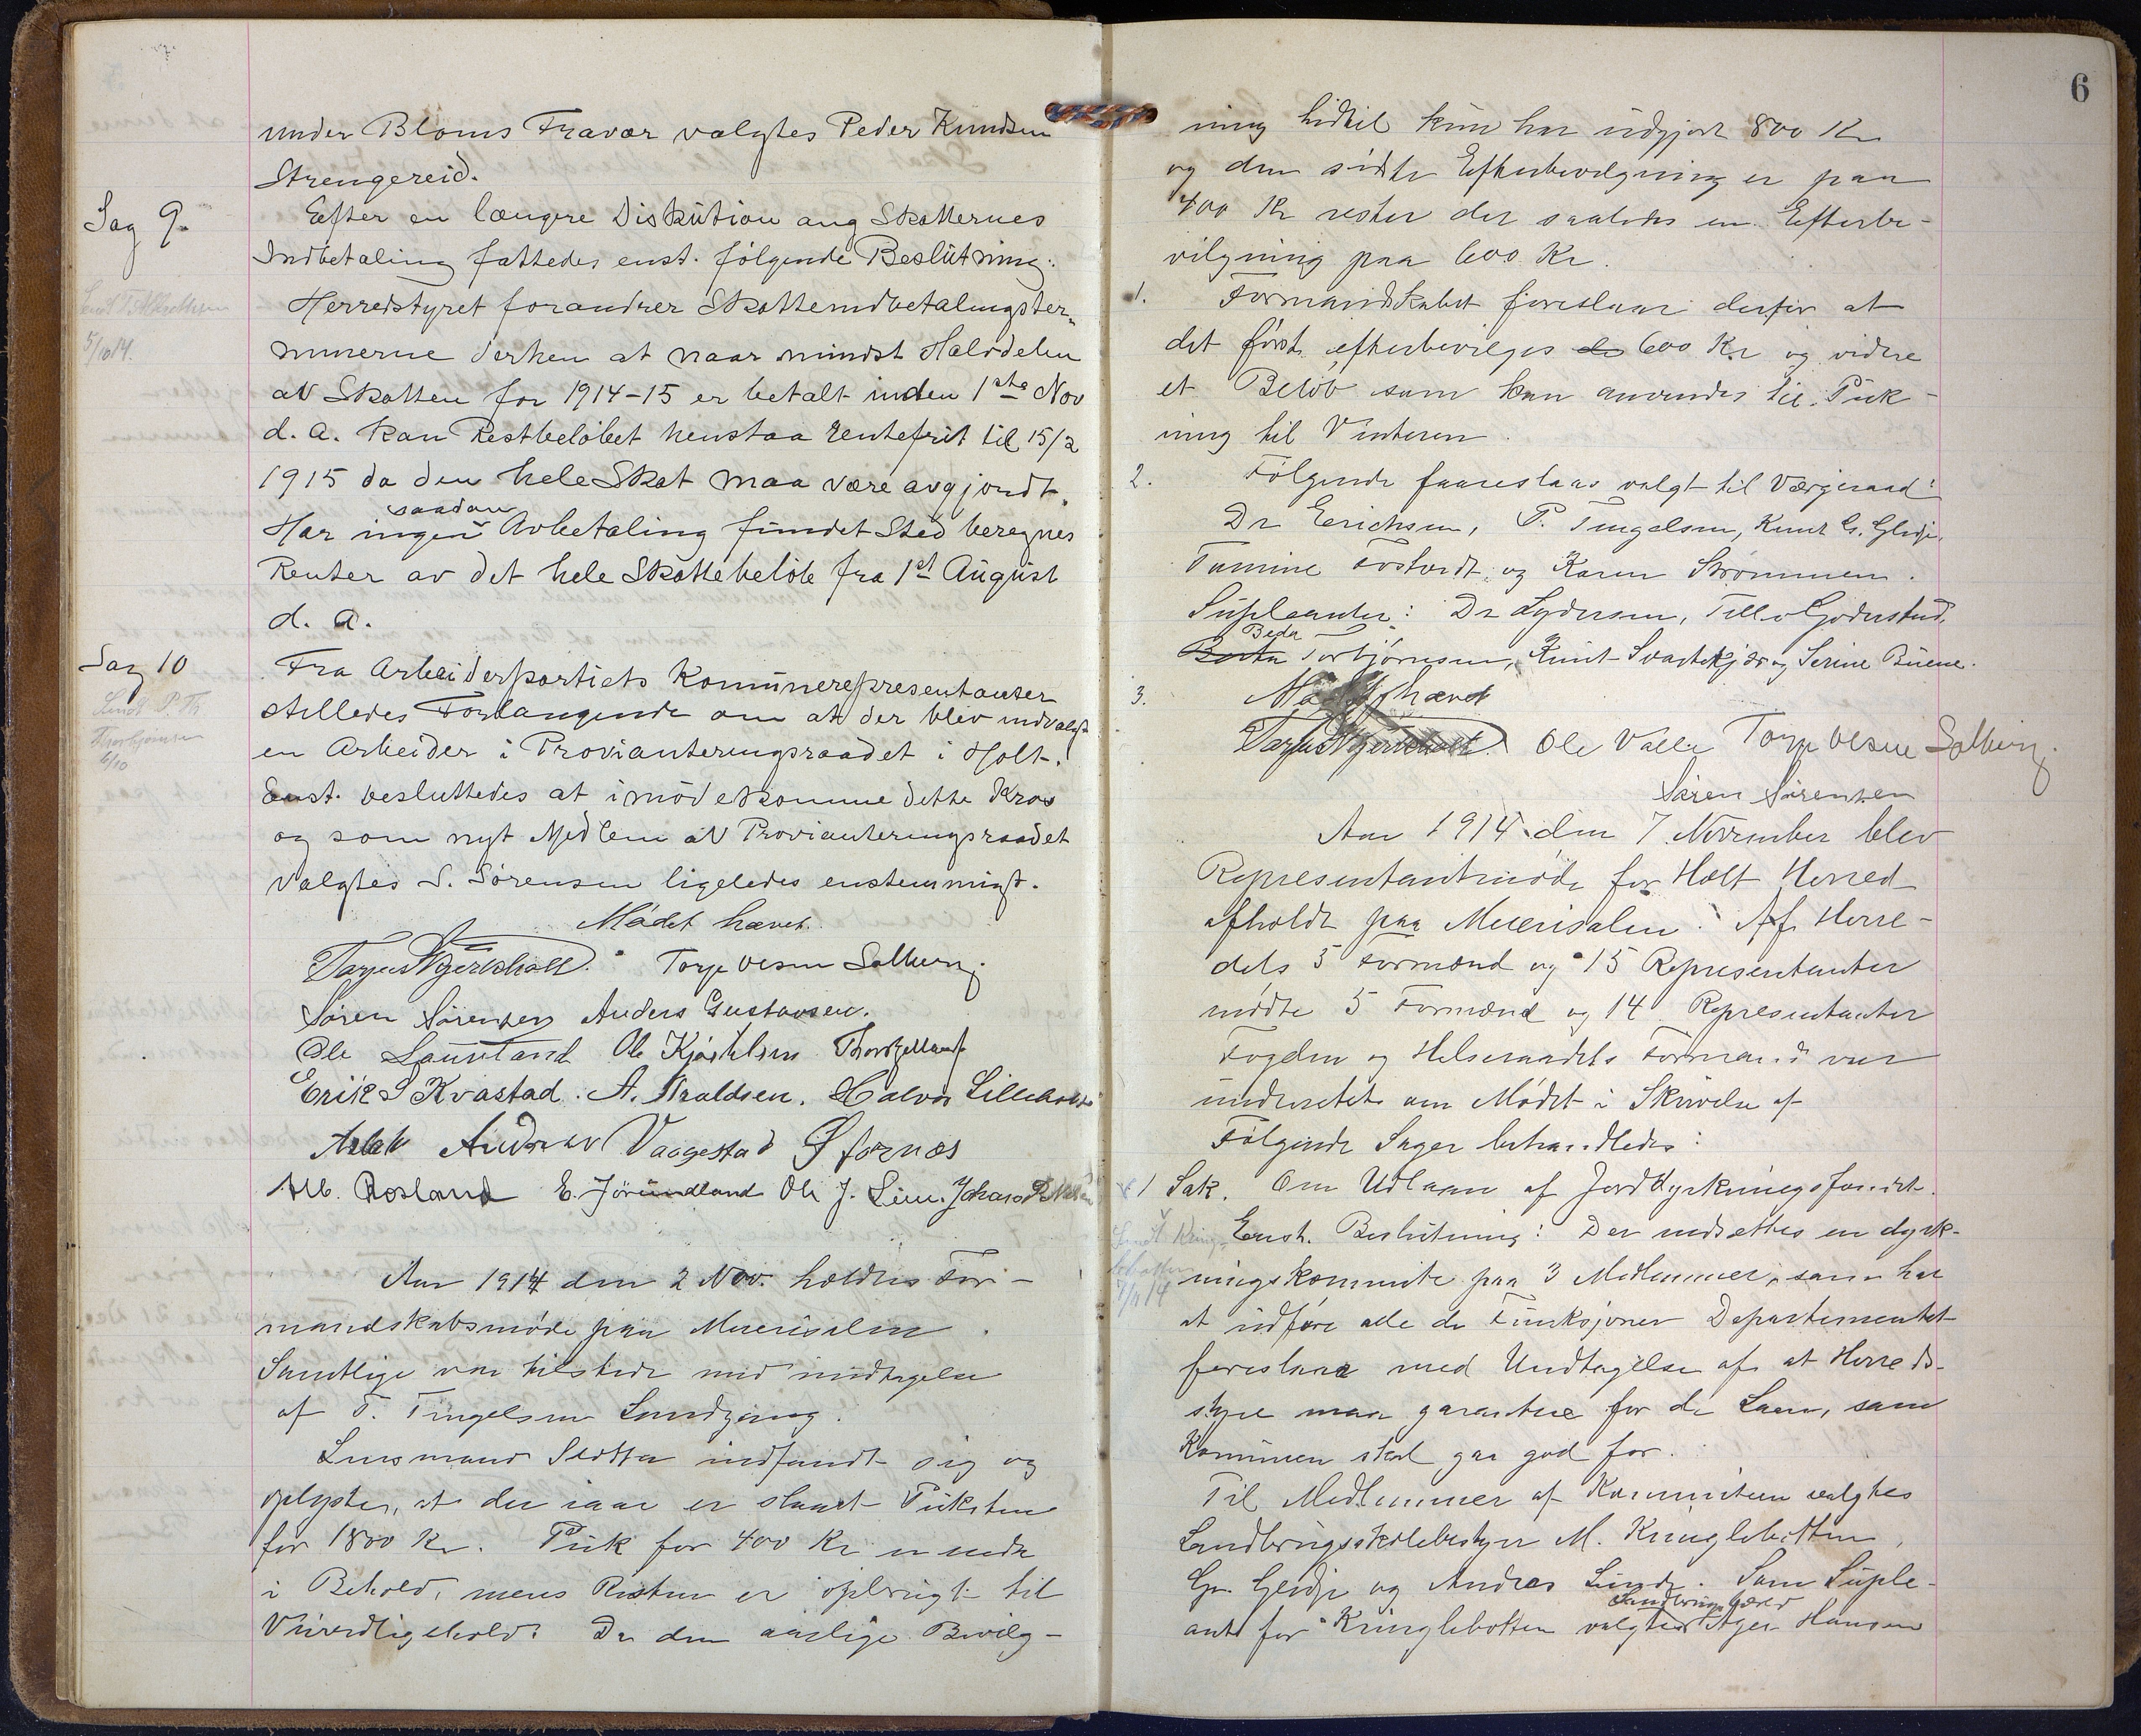 under Bloms Fravær valgtes Peder Knudsen
Strengereid.
Sag 9.
Efter en længere Diskution ang Skatternes
Indbetaling fattedes enst. følgende Beslutning:
Herredstyret forandrer Skatteindbetalingster-
minerne derhen at naar mindst Halvdelen
av Skatten for 1914-15 er betalt inden 1ste Nov
d. a. kan Restbeløbet henstaa rentefrit til 15/2
1915 da den hele Skat maa være avgjordt.
Har ingen saadan Avbetaling fundet Sted beregnes
Renter av det hele Skattebeløb fra 1st August
d. a.
5/10 14.
Sag 10
Fra Arbeiderpartiets Komunerepresentanter
stilledes Forlangende om at der blev indvalgt
en Arbeider i Provianteringsraadet i Holt.
Enst. besluttedes at imødekomme dette Krav
og som nyt Medlem av Provianteringsraadet
valgtes S. Sørensen ligeledes enstemmigt.
Sendt P. Th
Thorbjørnsen
6/10
Mødet hævet.
Torje Olsen Solberg
Søren Sørensen Anders Gustavsen.
Ole Lauvland Ole Kjøstelsen
Erik S Kvastad. A. Araldsen. Halvor Lilleholt
Vaagestad Ø fornæs
Alb. Rosland E. Jörundland Ole J. Lien. Johan
Aar 1914 den 2 Nov. holdtes For-
mandskabsmøde paa Meierisalen.
Samtlige var tilstede med undtagelse
af T. Tingelsen Lundgang.
Lensmand Slotta indfandt sig og
oplyste, at der iaar er slaaet Puksten
for 1800 Kr. Puk for 400 Kr er enda
i Behold, mens Resten er opbrugt til
Veivedligehold. Da den aarlige Bevilg-
6
ning hidtil kun har udgjort 800 Kr
og den sidste Efterbevilgning er paa
400 Kr rester der saaledes en Efterbe-
vilgning paa 600 Kr.
1. Formandskabet foreslaar derfor at
det først efterbevilges 600 Kr og videre
et Beløb som kan anvendes til Puk-
ning til Vinteren.
2. Følgende foareslaaes valgt til Værgeraad:
Dr Erichsen, P. Tingelsen, Knut G. Gledje,
Tomine Fostvedt og Karen Strømmen.
Supleanter: Dr Lydersen, Tellef Goderstad,
Beda Torbjørnsen, Knut Svartekjær og Serine Buene.
3. Mødet hævet
Ole Valle Torje Olsen Solberg.
Søren Sørensen
Aar 1914 den 7 November blev
Representantmøde for Holt Herred
afholdt paa Meierisalen. Af Herre-
dets 5 Formænd og 15 Representanter
mødte 5 Formænd og 14 Representanter
Fogden og Helseraadets Formand var
underrettet om Mødet i Skrivelse af
Følgende Sager behandledes:
1 Sak. Om Udlaan af Jorddyrkningsfondet.
Enst. Beslutning: Der nedsættes en dyrk-
ningskommite paa 3 Medlemmer, som har
at udføre alle de Funksjoner Departementet
foreslaar med Undtagelse af at Herreds-
styre maa garantere for de Laan, som
Komunen skal gaa god for.
Til Medlemmer af Kommiteen valgtes
Landbrugsskolebestyrer M. Kringlebotten,
Gr. Gledje og Andres Lunde. Som Suple-
ant for Kringlebotten valgtes Landbrugslærer Hansen